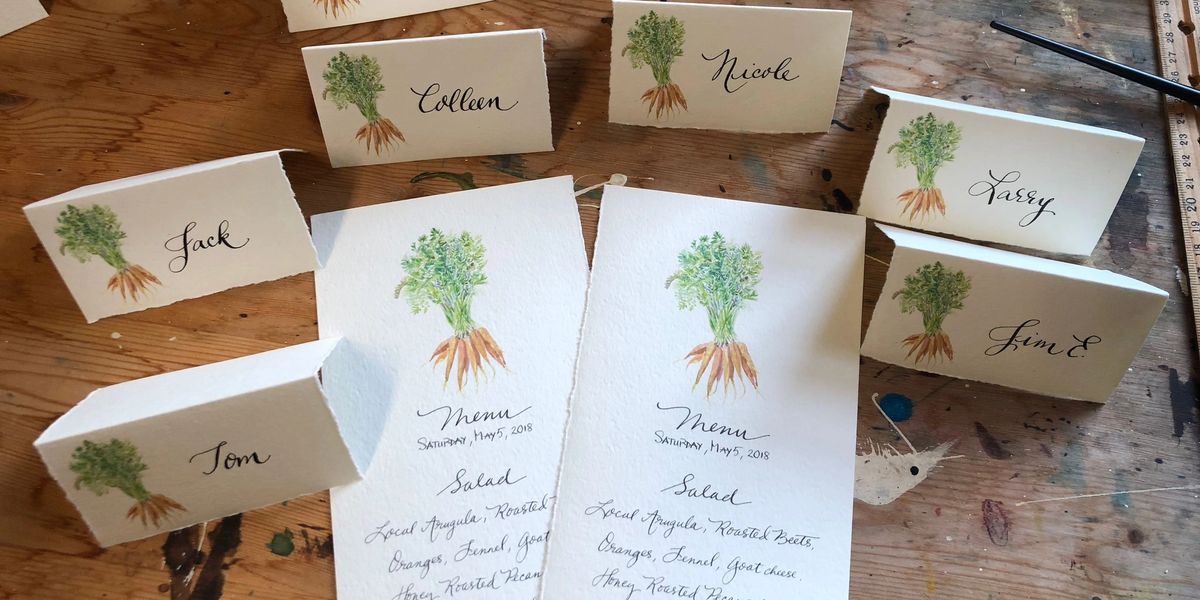 Colleen
Nicole
Larry
Jack
Jim E.
Tom
Menu
Saturday, May 5, 2018
Salad
Local Arugula, Roasted
Oranges, Fennel, Goat
Honey Roasted Pecan
Menu
Saturday, May 5, 2018
Salad
Local Arugula, Roasted Beets,
Oranges, Fennel, Goat cheese,
Honey Roasted Pecan
29
28
27
26
24
23
22
21
20
19